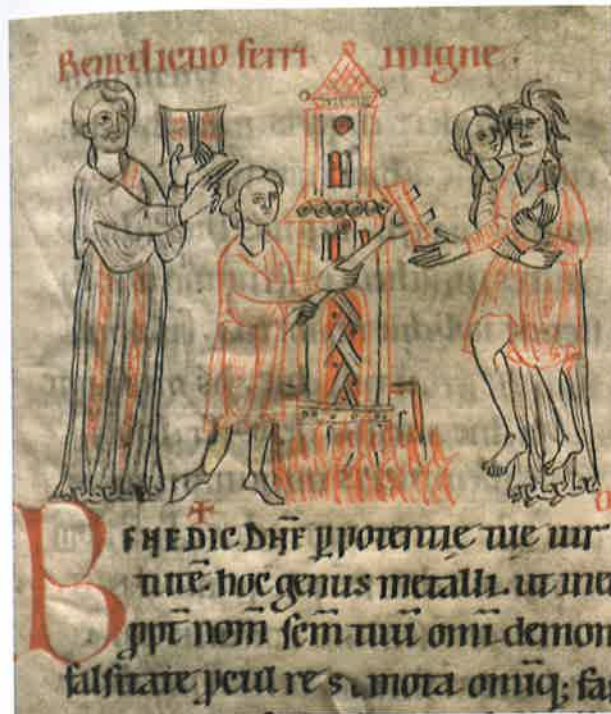 Benedictio ferri igne.
BENEDIC DÑE p potentie tue uir
tutē hoc genus metalli. ut in
ppt nom̄ scm̄ tuū omi demon
falsitate re mota omiq; fa